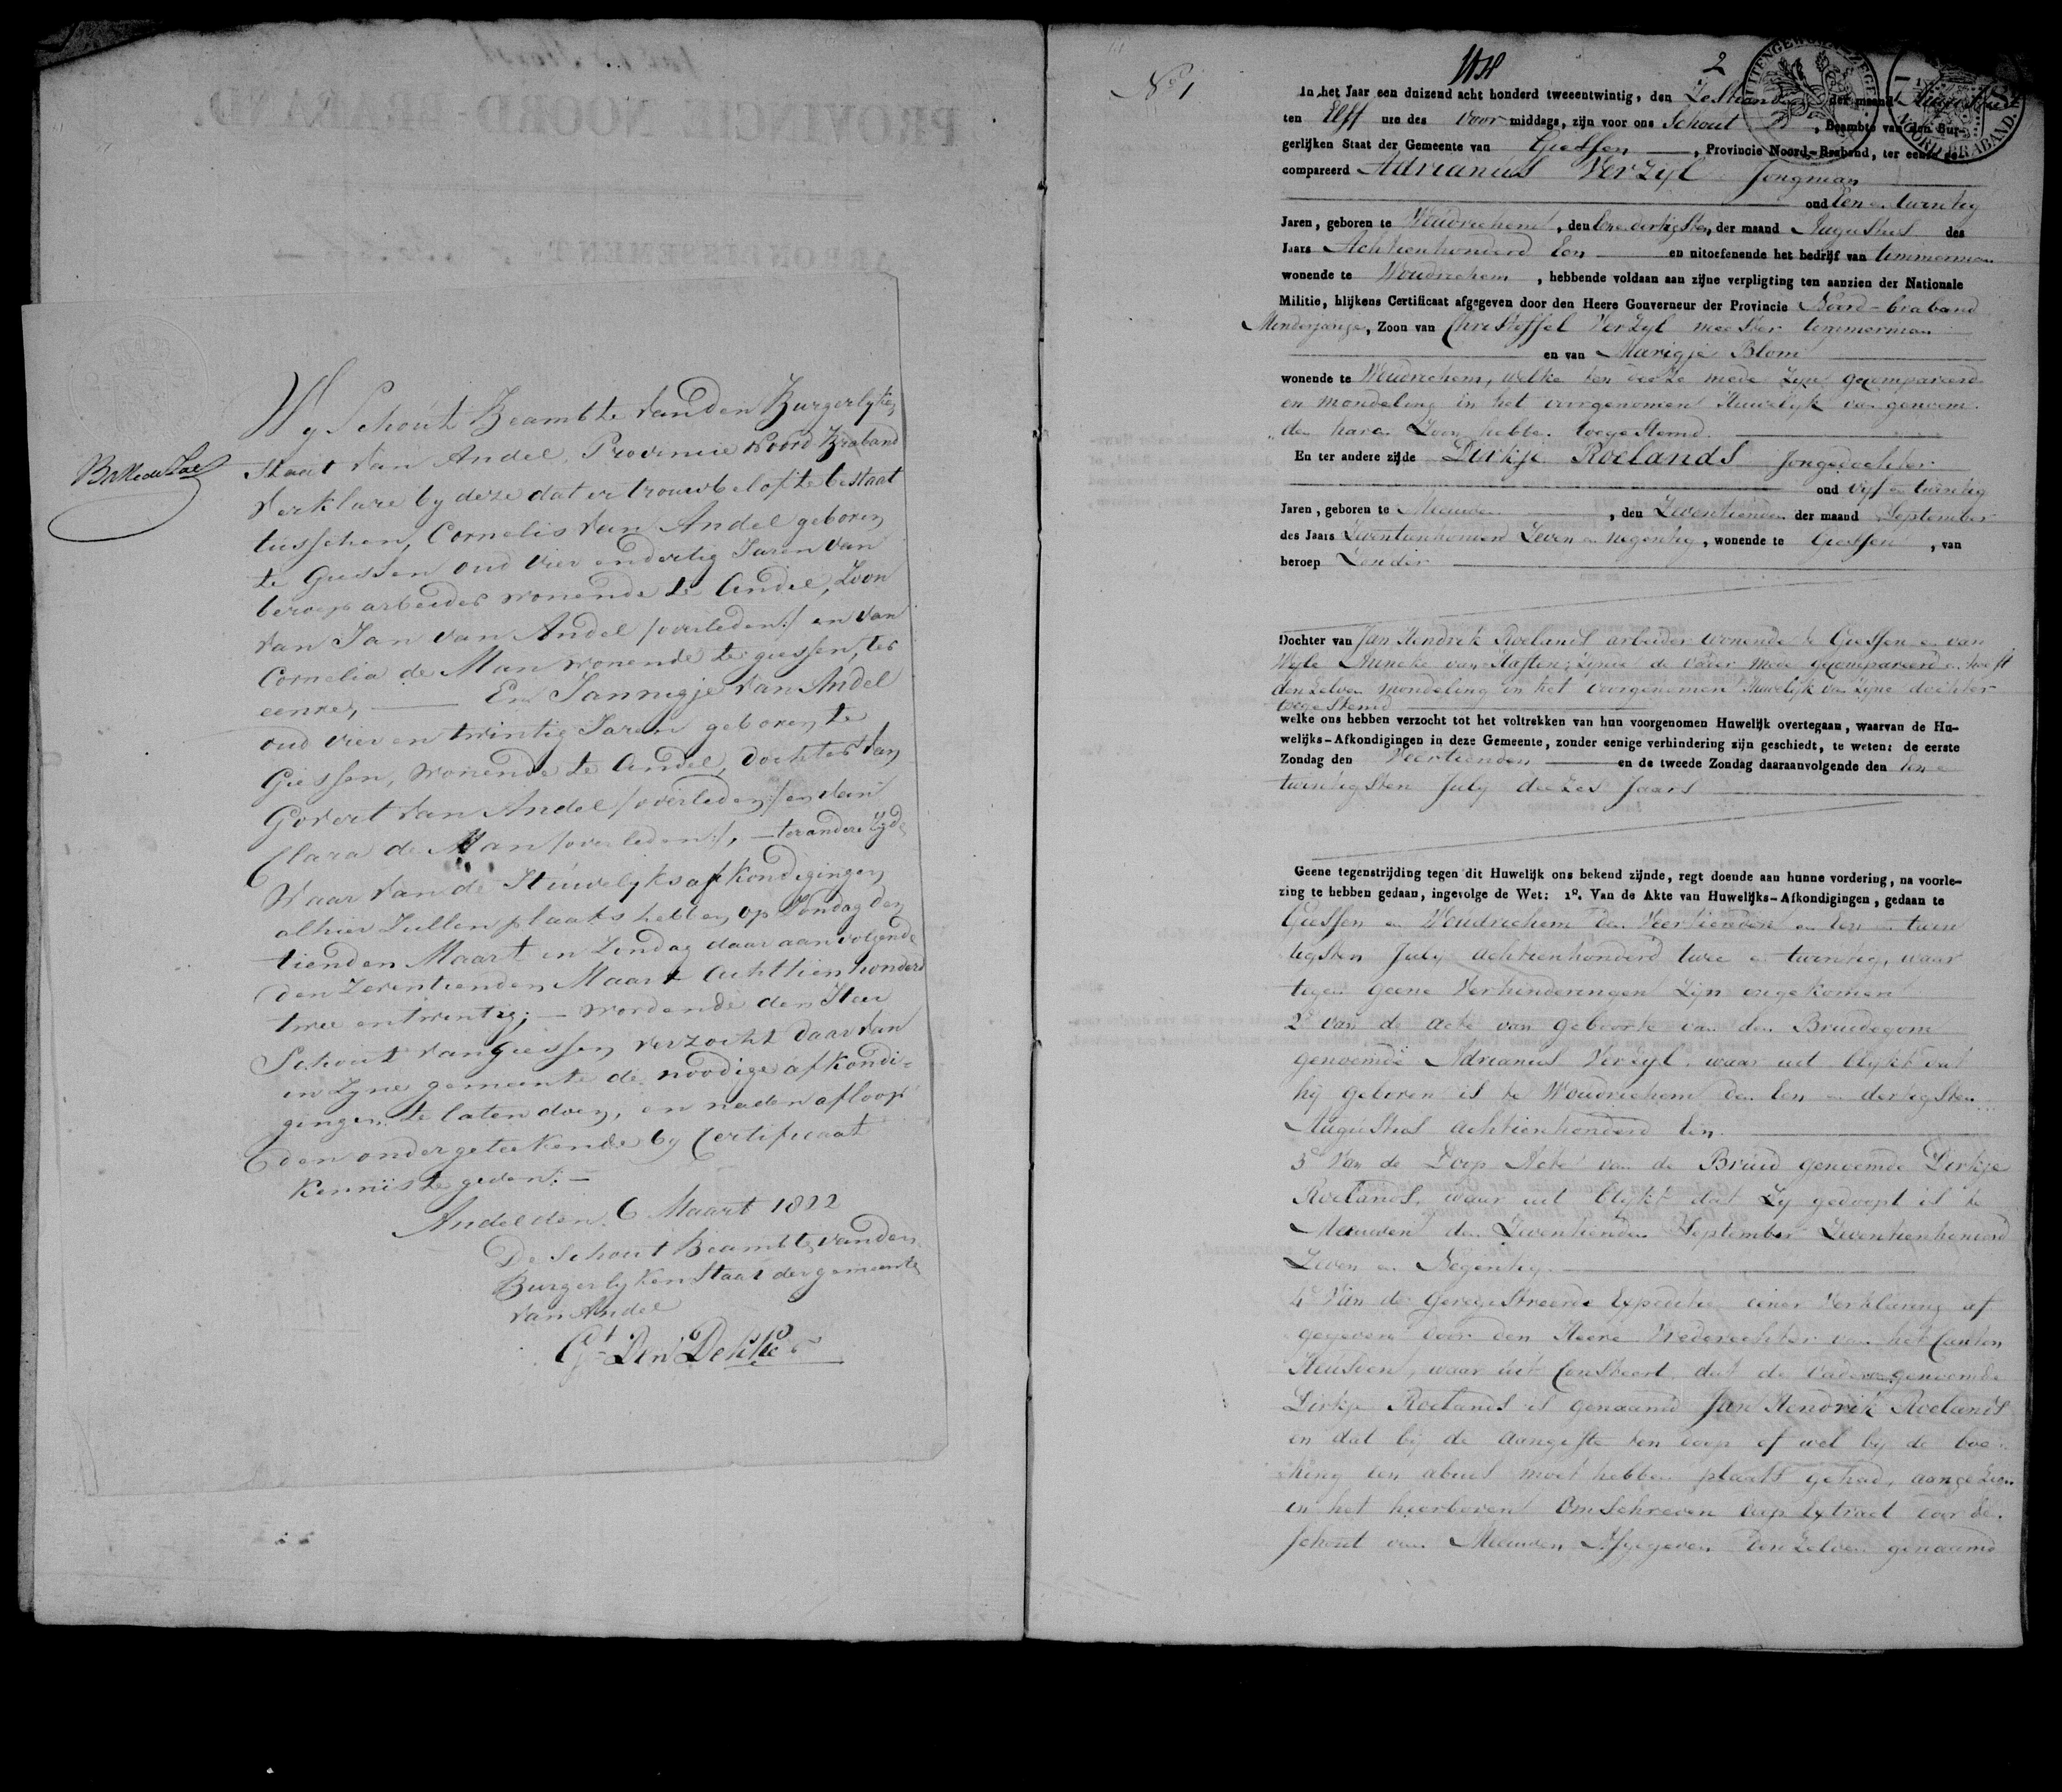 Wy Schout Beambte van den Burgerlyken
Staat van Andel, Provincie Noord Braband
verklare by deze dat er trouwbelofte bestaat
tusschen, Cornelis van Andel geboren
te Giessen oud vier en dertig Jaren van
beroep arbeider wonende te Andel, Zoon
van Jan van Andel /overleden:/ en van
Cornelia de Man wonende te giessen, ter
eenre, — En Jannigje van Andel
oud vier en twintig Jaren geboren te
Giessen, wonende te Andel, dochter van
Govert van Andel /overleden:/ en van
Clara de Man /overleden:/, — ter andere zyde
Waar van de Huwelyks afkondigingen
alhier Zullen plaats hebben, op Zondag den
tienden Maart en Zondag daar aan volgende
den Zeventienden Maart Achttien honderd
twee en twintig; — wordende den Heer
Schout van Giessen verzocht daar van
in Zyne gemeente de noodige afkondi-
gingen te laten doen, en na den afloop
den ondergetekende by Certificaat
kennis te geven: —
Andel den 6 Maart 1822
De Schout Beambte van den
Burgerlyken Staat der gemeente
van Andel
Gt Den Dekker
No 1
2
In het Jaar een duizend acht honderd tweeentwintig, den Zestienden der maand Augustus
ten Elff ure des Voor middags, zijn voor ons Schout, Beambte van den Bur-
gerlijken Staat der Gemeente van Giessen, Provincie Noord-Braband, ter eenre ge-
compareerd Adrianus Verzyl Jongman
oud Een en twintig
Jaren, geboren te Woudrichem, den Een dertigsten, der maand Augustus des
Jaars Achtienhonderd Een en uitoefenende het bedrijf van timmerman
wonende te Woudrichem, hebbende voldaan aan zijne verpligting ten aanzien der Nationale
Militie, blijkens Certificaat afgegeven door den Heere Gouverneur der Provincie Noord-braband
Minderjarige, Zoon van Christoffel Verzyl meester timmerman
en van Marigje Blom
wonende te Woudrichem, welke ten deeze mede zyn gecompareerd
en mondeling in het voorgenomen Huwelyk van genoem-
den hare Zoon hebbe. toegestemd
En ter andere zijde Dirkje Roelands Jongedochter
oud vyf en twintig
Jaren, geboren te Meeuwen, den Zeventienden der maand September
des Jaars Zeventienhonderd Zeven en negentig, wonende te Giessen, van
beroep Zonder
Dochter van Jan Hendrik Roelands arbeider wonende te Giessen en van
Wyle Anneke van Haften; zynde de vader mede gecompareerd en heeft
denzelven mondeling in het voorgenomen Huwelyk van zyne dochter
toegestemd
welke ons hebben verzocht tot het voltrekken van hun voorgenomen Huwelijk overtegaan, waarvan de Hu-
welijks-Afkondigingen in deze Gemeente, zonder eenige verhindering zijn geschiedt, te weten: de eerste
Zondag den Veertienden en de tweede Zondag daaraanvolgende den Een en
twintigsten July deezes Jaars
Geene tegenstrijding tegen dit Huwelijk ons bekend zijnde, regt doende aan hunne vordering, na voorle-
zing te hebben gedaan, ingevolge de Wet: 1o. Van de Akte van Huwelijks-Afkondigingen, gedaan te
Giessen en Woudrichem den Veertienden en Een en twin
tigsten July achtienhonderd twee en twintig, waar
tegen geene Verhinderingen zyn ingekomen
2o van de acte van geboorte van den Bruidegom
genoemde Adrianus Verzyl, waar uit blykt dat
hy geboren is te Woudrichem den Een en dertigsten
Augustus achtienhonderd Een.
3o Van de Doop Acte van de Bruid genoemde Dirkje
Roelands, waar uit blykt dat Zy gedoopt is te
Meeuwen den Zeventienden September Zeventienhonderd
Zeven en Negentig
4o Van de Geregistreerde Expeditie eener Verklaring af
gegeven door den Heere Vrederechter van het Canton
Heusden, waar uit Consteert dat de vader van genoemde
Dirkje Roelands is genaamd Jan Hendrik Roelands
en dat by de aangifte ten doop of wel by de boe-
king een abuis moet hebben plaats gehad, aangezien
in het hierboven Omschreven doop Extract door de
schout van Meeuwen Afgegeven denzelven genaamd